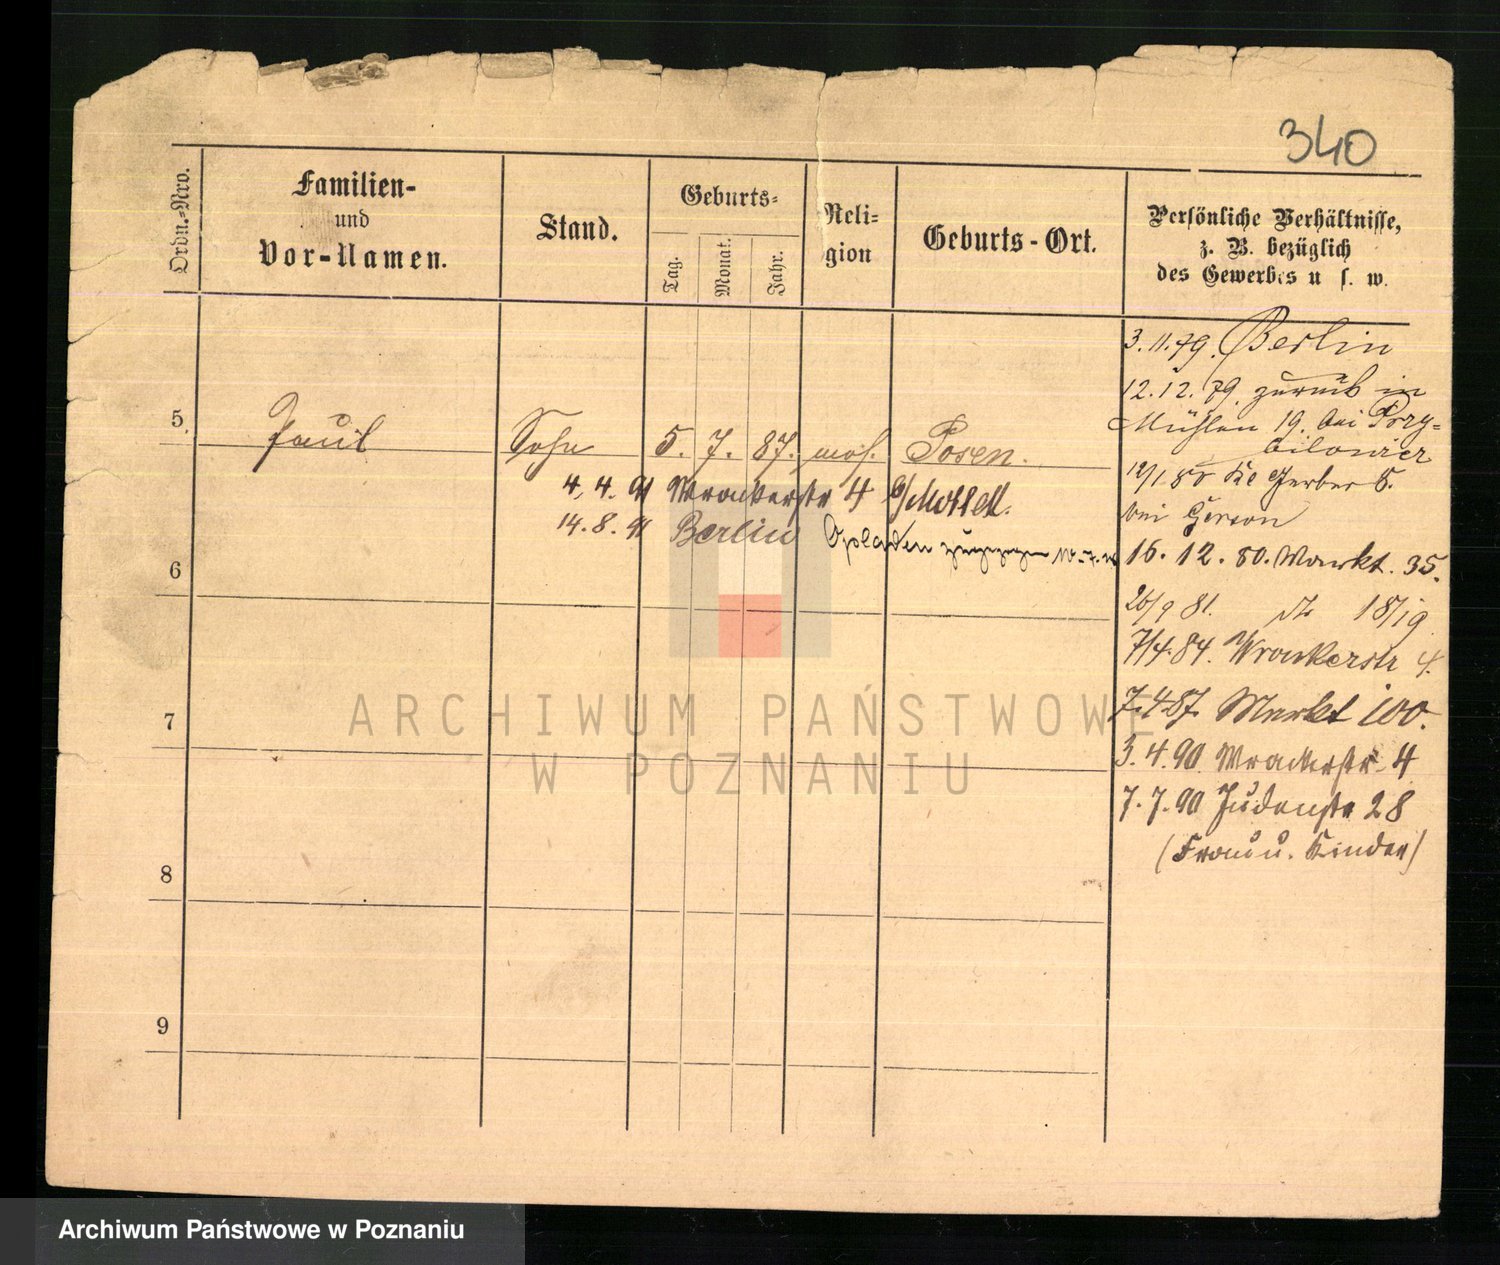 340
Ordn.-Nro.
Familien-
und
Vor-Namen.
Stand.
Geburts-
Tag.
Monat.
Jahr.
Reli-
gion
Geburts-Ort.
Persönliche Verhältnisse,
z. B. bezüglich
des Gewerbes u. s. w.
3.11.79. Berlin
12.12.79. zurück in
Mühlen 19. bei Przy-
bei Gerson
16.12.80. Markt. 35.
26/9 81. 18/19
7/4.84. Wronkerstr 4.
7.4.87. Markt 100.
3.4.90 Wronkerstr. 4
7.7.90 Judenstr 28
(Frau u. Kinder)
5 Paul Sohn 5. 7. 87. mos. Posen.
4.4.91 Wronkerstr 4
14.8.91 Berlin Opladen
6
7
8
9
ARCHIWUM PAŃSTWOWE
W POZNANIU
Archiwum Państwowe w Poznaniu